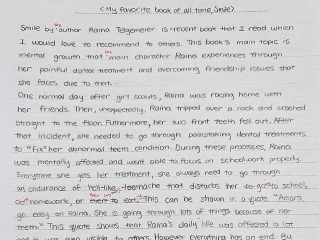 (My favorite book of all time, Smile)
Smile by the author Raina Telgemeier is recent book that I read which
I would love to recommend to others. This book's main topic is
mental growth that the main character Raina experiences through
her painful dental treatment and overcoming friendship issues that
she faces due to that.
One normal day after girl scouts, Raina was racing home with
her friends. Then, unexpectedly, Raina tripped over a rock and crashed
straight to the floor. Futhermore, her two front teeth fell out. After
that incident, she needed to go through painstaking dental treatments
to "fix" her abnormal teeth condition. During these processes, Raina
was mentally affected and want able to focus on schoolwork properly.
Everytime she gets her treatment, she always need to go through
an endurance of hell-like toothache that disturbs her to go to school,
do homework, or eat. This can be shown in a quote "Amara,
go easy on Raina. She is going through lots of things because of her
teeth." This quote shows that Raina's daily life was affected a lot
was even visible to others. However everything has an end. By